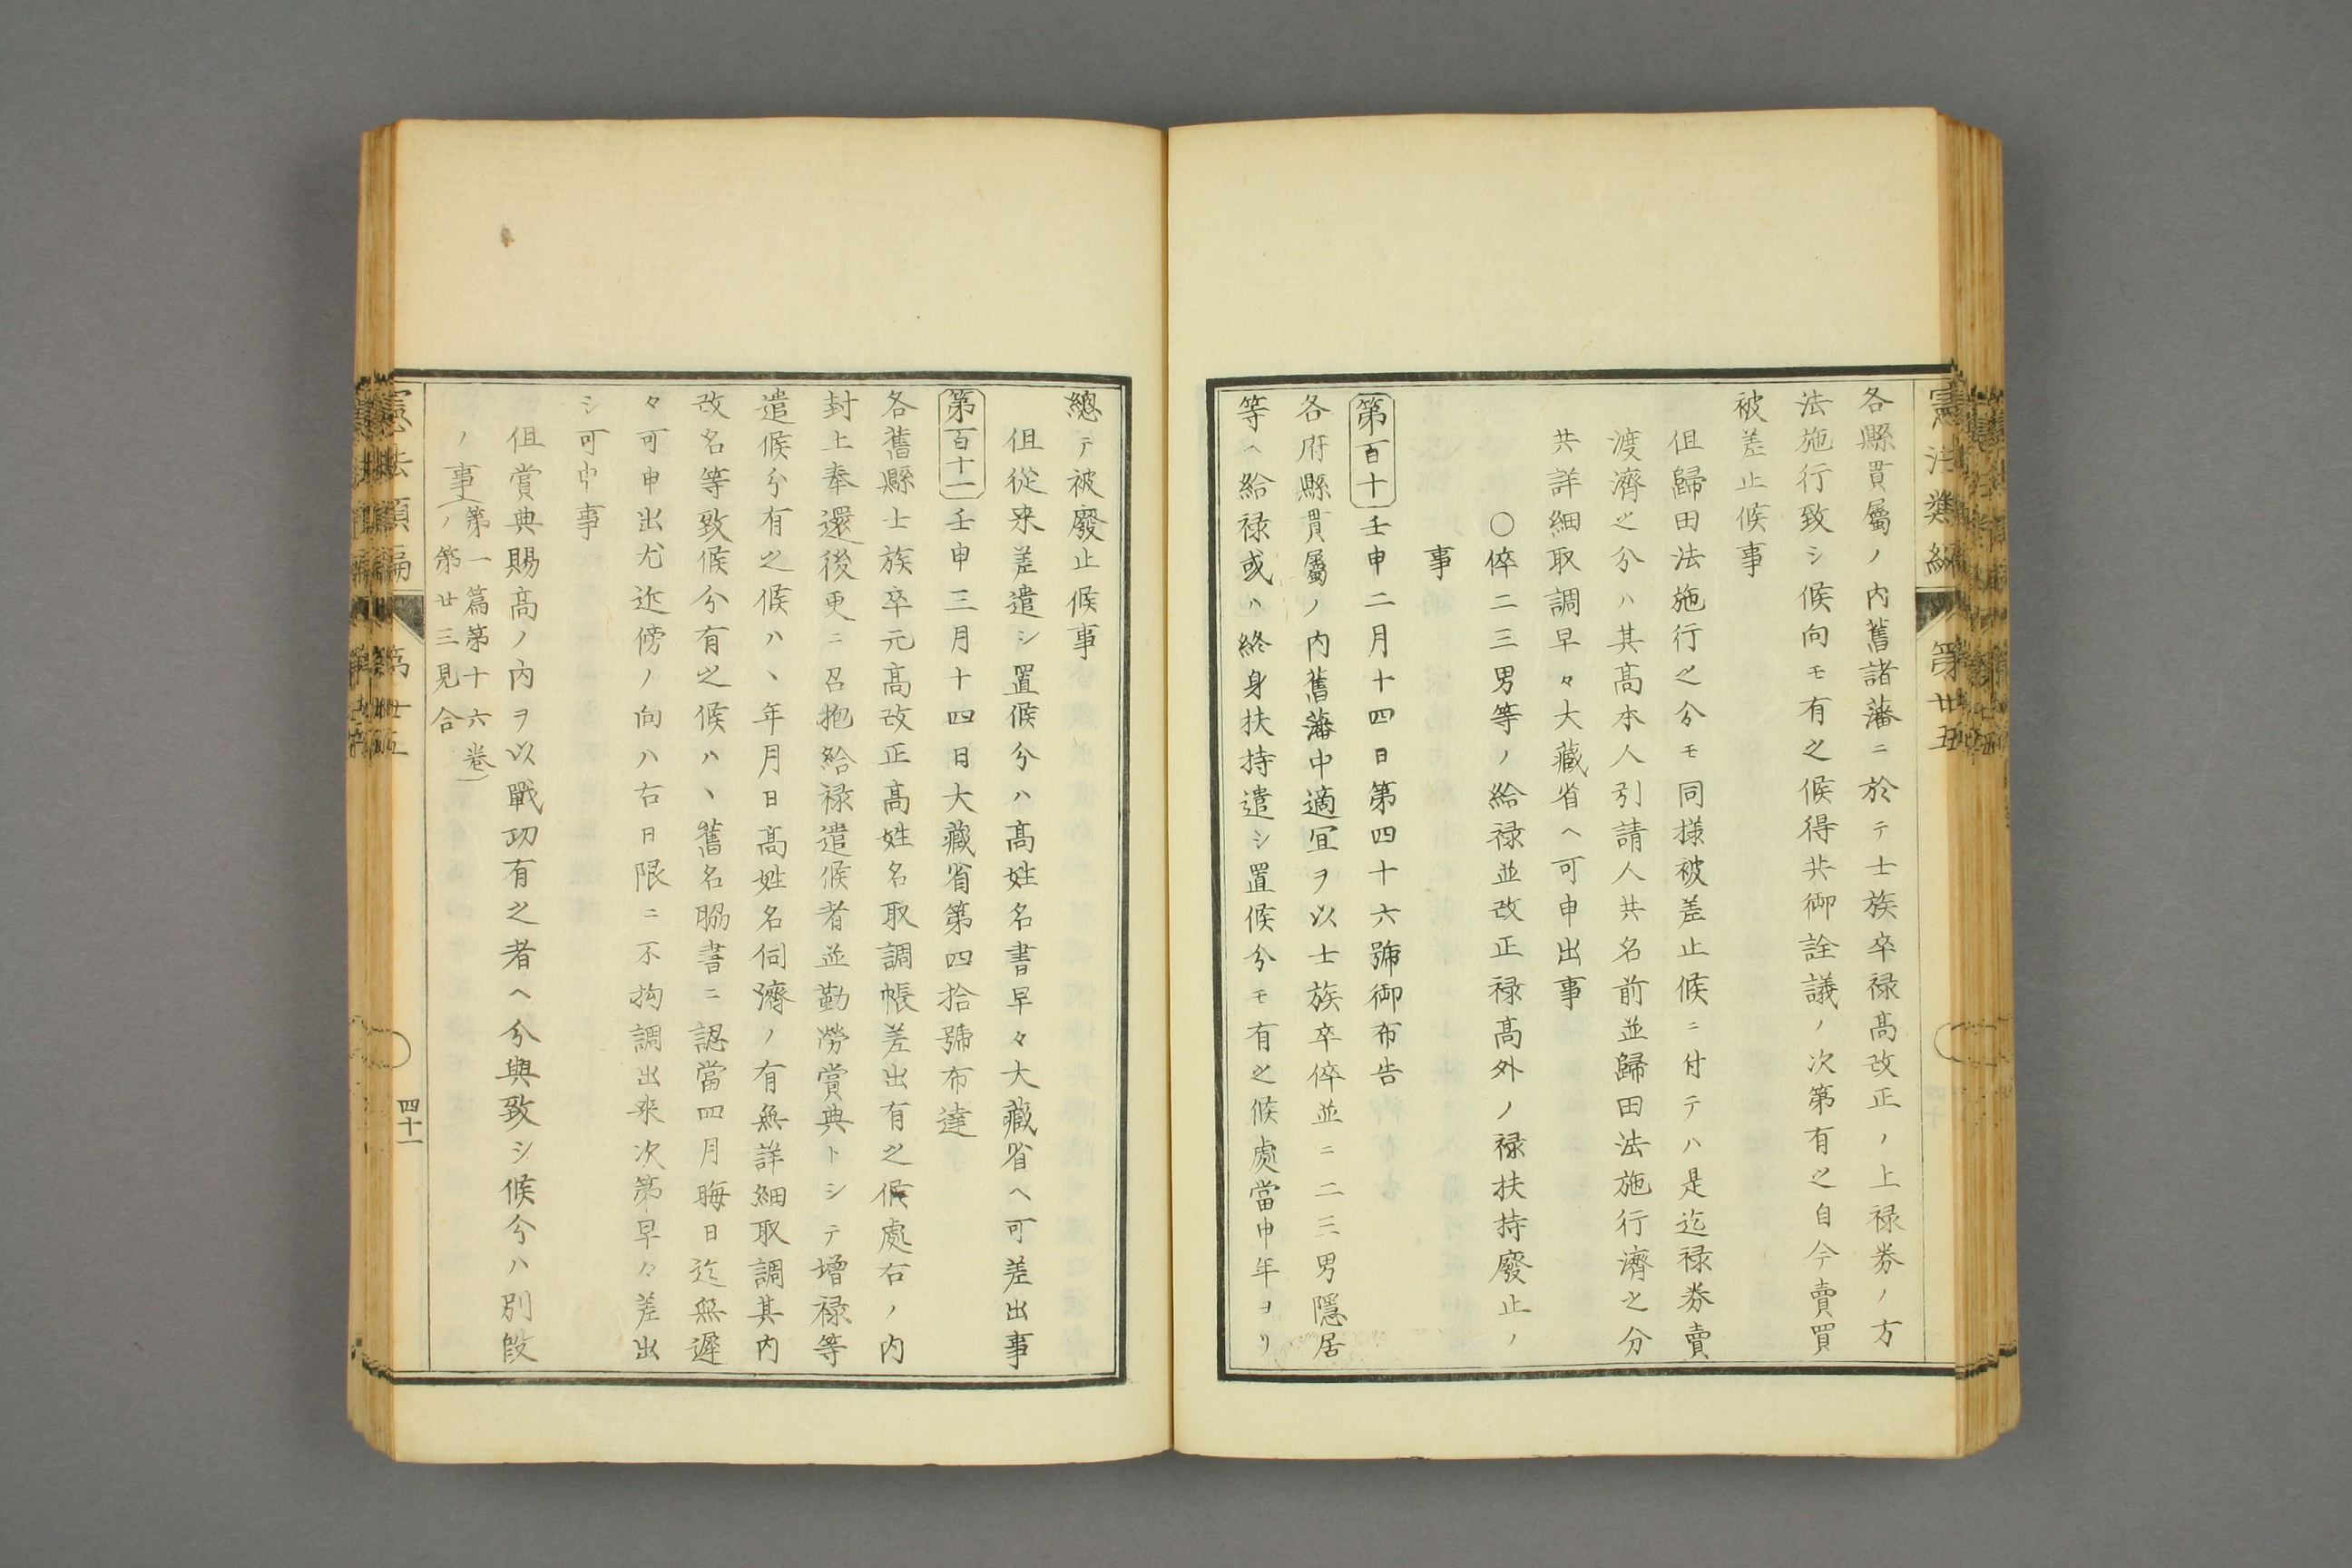 各縣貫屬ノ内舊諸藩ニ於テ士族卒禄髙改正ノ上禄券ノ方
法施行致シ候向モ有之候得共御詮議ノ次第有之自今賣買
被差止候事
但歸田法施行之分モ同様被差止候ニ付テハ是迄禄券賣
渡濟之分ハ其髙本人引請人共名前並歸田法施行濟之分
共詳細取調早々大藏省ヘ可申出事
○倅二三男等ノ給禄並改正禄髙外ノ禄扶持廢止ノ
事
第百十壬申二月十四日第四十六號御布告
各府縣貫屬ノ内舊藩中適宜ヲ以士族卒倅並ニ二三男隱居
等ヘ給禄或ハ終身扶持遣シ置候分モ有之候處當申年ヨリ
總テ被廢止候事
但從来差遣シ置候分ハ髙姓名書早々大藏省ヘ可差出事
第百十一壬申三月十四日大藏省第四拾號布達
各舊縣士族卒元髙改正髙姓名取調帳差出有之候處右ノ内
封上奉還後更ニ召抱給禄遣候者並勤勞賞典トシテ増禄等
遣候分有之候ハヽ年月日髙姓名伺濟ノ有無詳細取調其内
改名等致候分有之候ハヽ舊名脇書ニ認當四月晦日迄無遲
々可申出尤近傍ノ向ハ右日限ニ不拘調出来次第早々差出
シ可申事
但賞典賜髙ノ内ヲ以戰功有之者ヘ分與致シ候分ハ別段
ノ事(第一篇第十六卷
ノ第廿三見合)
憲法類編 第廿五
四十一